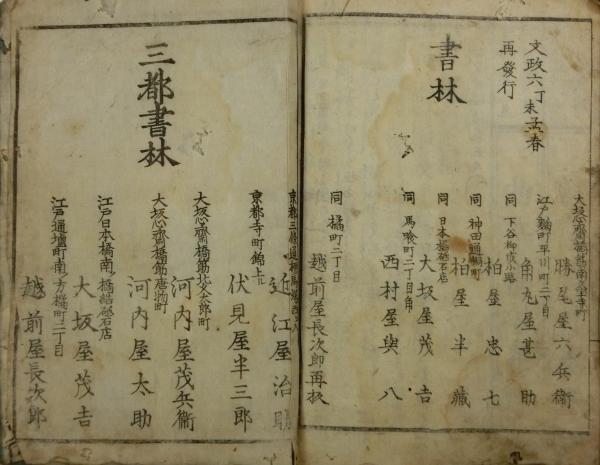 文政六丁未孟春
再發行
書林
大坂心齋橋筋南久宝寺町
勝尾屋六兵衛
江戸麹町平川町二丁目
角丸屋甚助
同 下谷御成小路
柏屋忠七
同 神田通鍋町
柏屋半藏
同 日本橋砥石店
大坂屋茂吉
同 馬喰町二丁目角
西村屋與八
同 橘町二丁目
越前屋長次郎再板
京都三條通
近江屋治助
京都寺町錦上ル
伏見屋半三郎
大坂心齋橋筋北久太郎町
河内屋茂兵衛
大坂心齋橋筋唐物町
河内屋太助
江戸日本橋南 砥石店
大坂屋茂吉
江戸通塩町南ノ方橘町二丁目
越前屋長次郎
三都書林